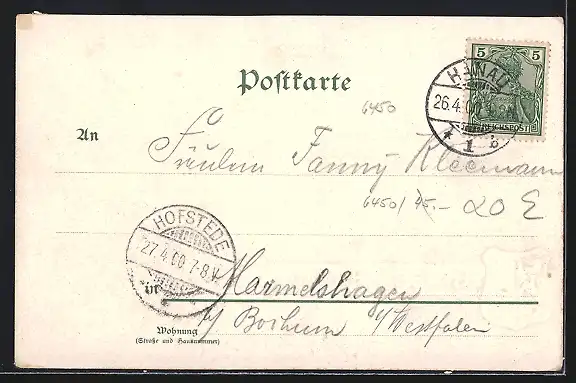 5
REICHSPOST
HANAU
26.4.00
* 1 b
Postkarte
6450
An
Fräulein Fanny Kleemann
6450/ 45.- 20 E
HOFSTEDE
27.4.00 7-8 V.
in Harmelshagen
b/ Bochum i/Westfalen
Wohnung
(Straße und Hausnummer)